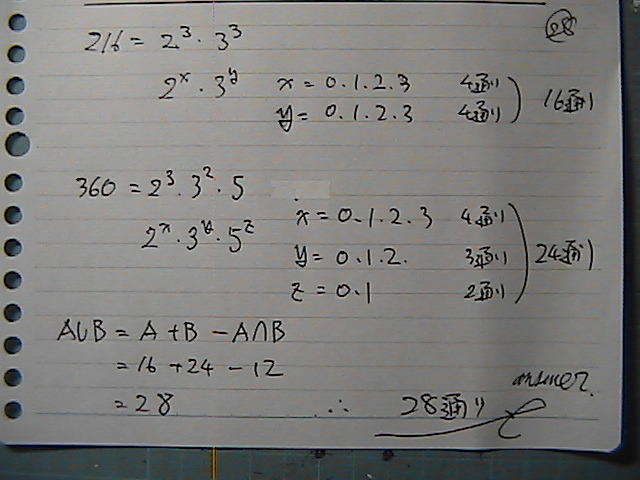 28
216 = 2³・3³
2ˣ・3ʸ x = 0.1.2.3 4通り
y = 0.1.2.3 4通り
16通り
360 = 2³・3²・5
2ˣ・3ʸ・5ᶻ x = 0.1.2.3 4通り
y = 0.1.2. 3通り 24通り
z = 0.1 2通り
A∪B = A + B − A∩B
= 16 + 24 − 12
= 28 ∴ 28通り answer.